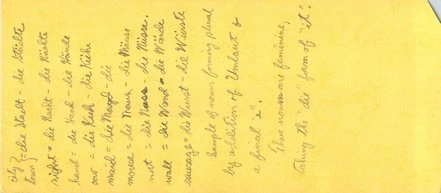 city } = die Stadt - die Städte
town }
night = die Nacht - die Nächte
hand - die Hand - die Hände
cow = die Kuh - die Kühe
maid = die Magd - die
mouse = die Maus - die Mäuse
nut = die Nuss - die Nüsse.
wall = die Wand - die Wände
sausage = die Wurst - die Würste
Sample of nouns forming plural
by addition of Umlaut &
a final "e".
These nouns are feminine,
taking the "die" form of "it".